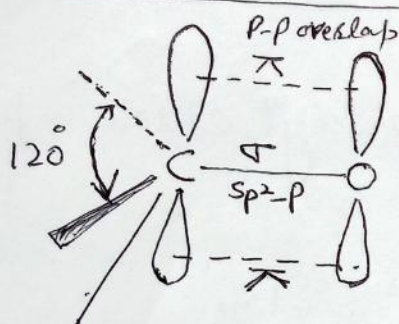 P-P overlap
π
120°
C σ O
sp²-p
π